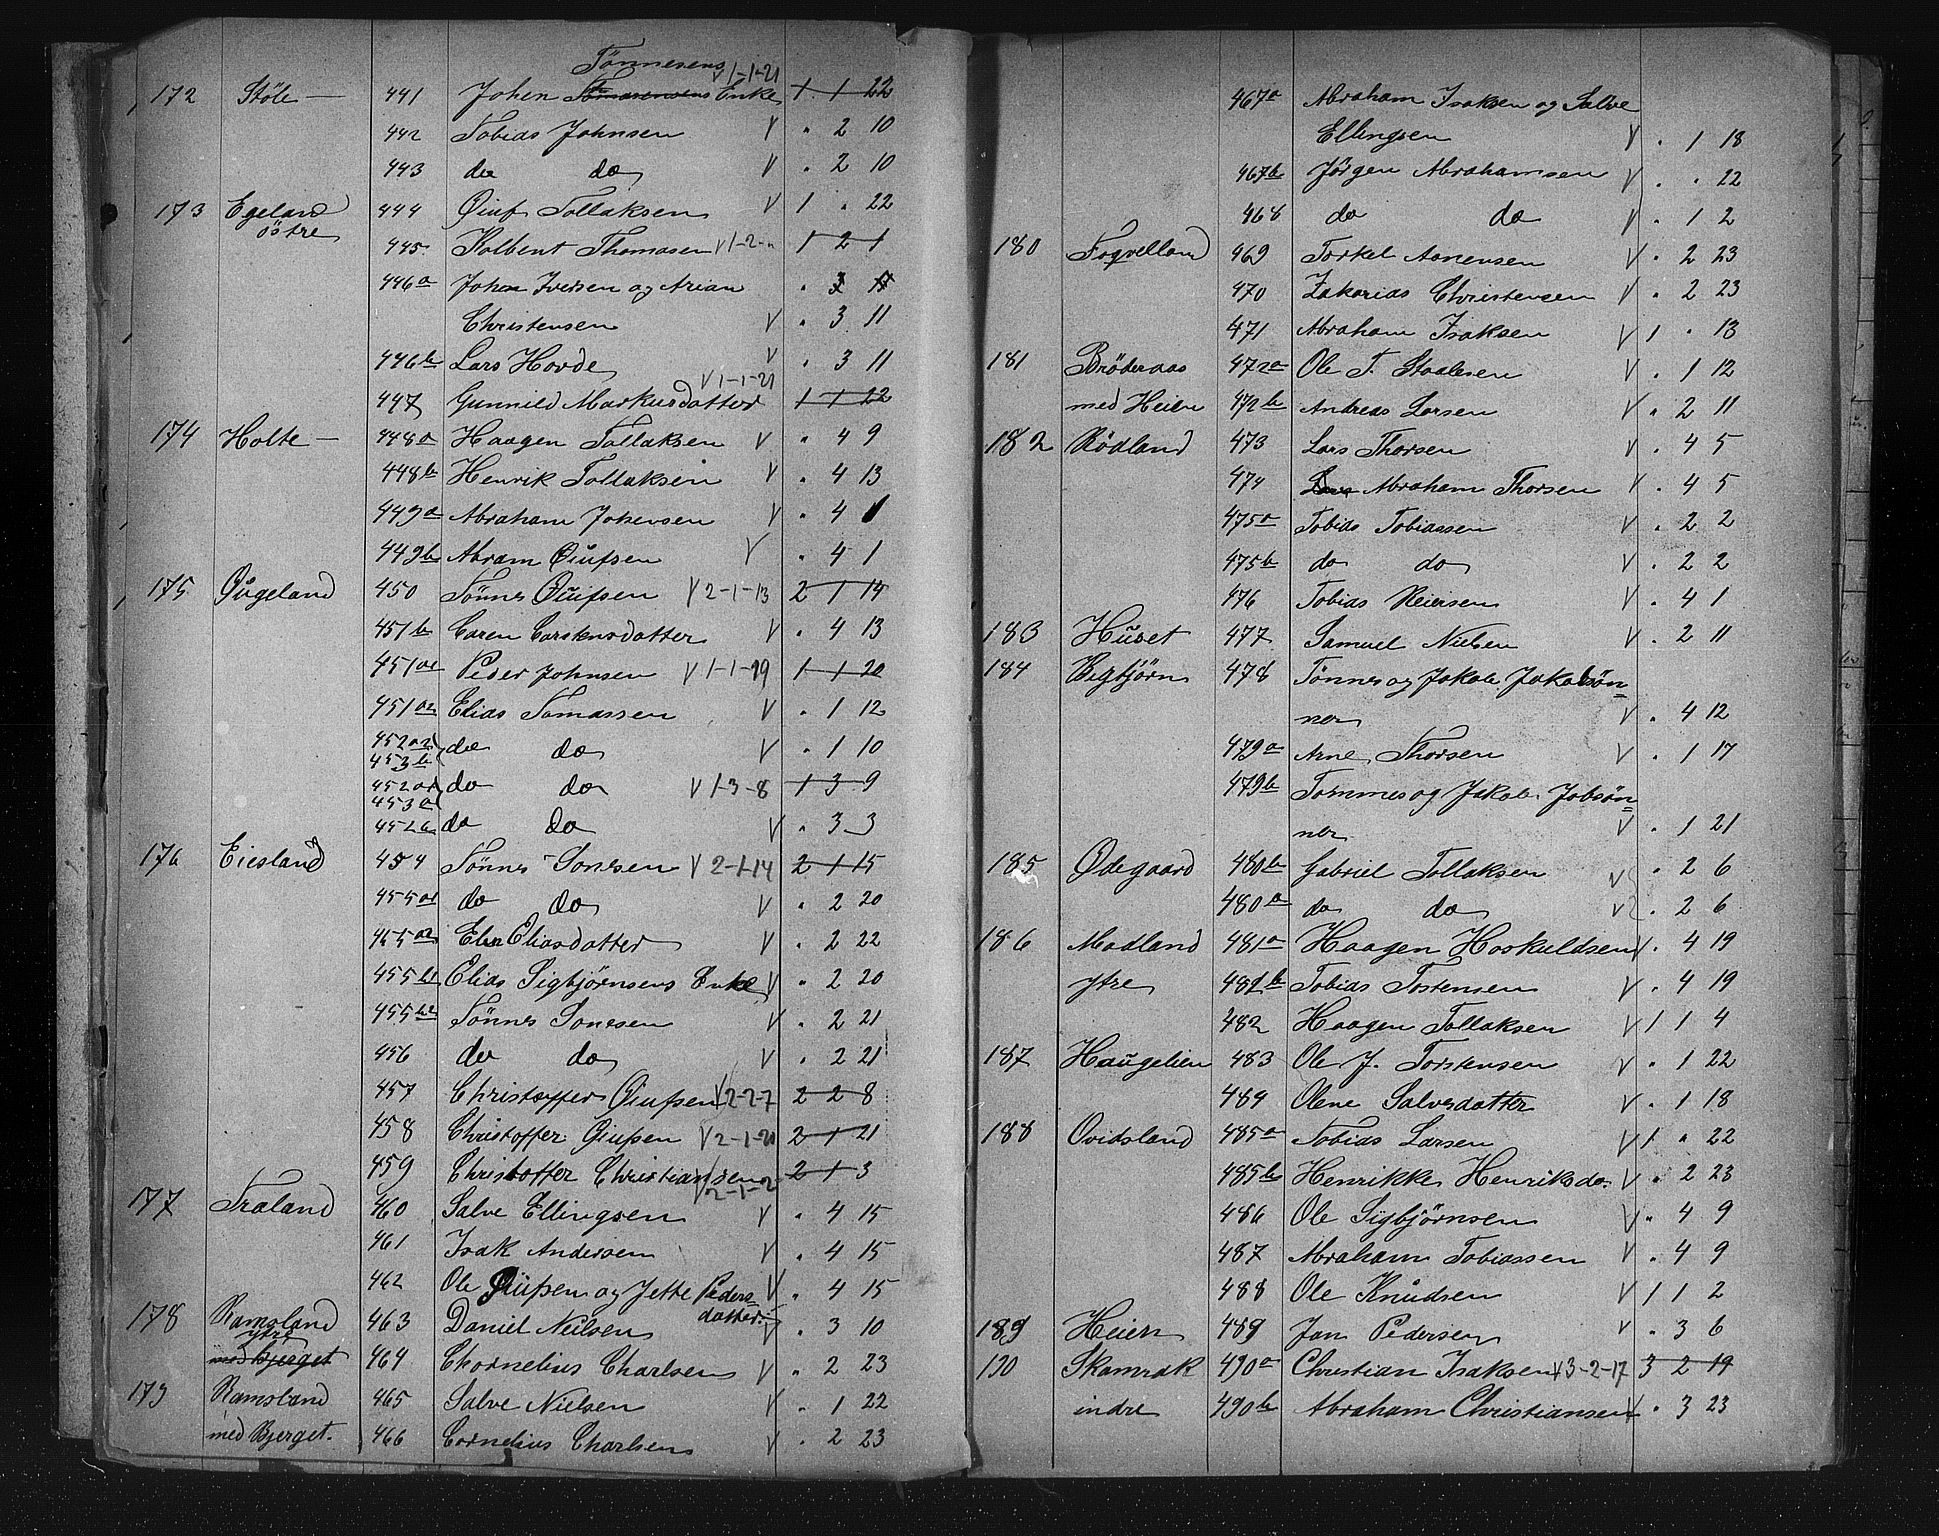 Tönnesens V 1-1-21
172 Støle — 441 Johen Tomasensens Enke 1 1 22
442 Tobias Johnsen V " 2 10
443 do do V " 2 10
173 Egeland 444 Øiuf Tollaksen V 1 " 22
östre
445 Kolbent Thomasen V 1-2-" 1 2 1
446a Johan Iversen og Arian " 3 11
Christensen V " 3 11
446b Lars Hovde V " 3 11
V 1-1-21
447 Gunnild Markusdatter 1 1 22
174 Holte — 448a Haagen Tollaksen V " 4 9
448b Henrik Tollaksen V " 4 13
449a Abraham Johensen V " 4 1
449b Abram Øiufsen V " 4 1
175 Øügeland 450 Tönnes Øiufsen V 2-1-13 2 1 14
451b Caren Carstensdatter V " 4 13
451a1 Peder Johnsen V 1-1-19 1 1 20
451a2 Elias Tomassen V " 1 12
452a2 453b do do V " 1 10
452a1 453a do do V 1-3-8 1 3 9
452b do do V " 3 3
176 Eiesland 454 Tönnes Sonesen V 2-1-14 2 1 15
455a1 do do V " 2 20
455a2 Elen Eliasdatter V " 2 22
455b1 Elias Sigbjørnsens Enke V " 2 20
455b2 Tönnes Sonesen V " 2 21
456 do do V " 2 21
457 Christoffer Øiufsen V 2-2-7 2 2 8
458 Christoffer Øiufsen V 2-1-20 2 1 21
459 Christoffer Christiansen 2 1 3
V 2-1-2
177 Traland 460 Salve Ellingsen V " 4 15
461 Isak Andersen V " 4 15
462 Ole Øiufsen og Jette Peders= V " 4 15
datter
178 Ramsland 463 Daniel Neilsen V " 3 10
ytre
med Bjerget 464 Chornelius Charlsen V " 2 23
179 Ramsland 465 Salve Nielsen V " 1 22
med Bjerget. 466 Cornelius Charlsen V " 2 23
467a Abraham Isaksen og Salve
Ellingsen V " 1 18
467b Jörgen Abrahamsen V " " 22
468 do do V " 1 2
180 Foqvelland 469 Torkel Aanensen V " 2 23
470 Zakarias Christensen V " 2 23
471 Abraham Isaksen V 1 " 13
181 Brøderaas 472a Ole T. Staalesen V " 1 12
med Heien 472b Andreas Larsen V " 2 11
182 Rødland 473 Lars Thorsen V " 4 5
474 Lars Abraham Thorsen V " 4 5
475a Tobias Tobiassen V " 2 2
475b do do V " 2 2
476 Tobias Reiersen V " 4 1
183 Hüset 477 Samuel Nielsen V " 2 11
184 Bigbjørn 478 Tönnes og Jakob Jakobsøn=
ner V " 4 12
479a Arne Thorsen V " 1 17
479b Tommes og Jakob Jobsøn=
ner V " 1 21
185 Ødegaard 480b Gabriel Tollaksen V " 2 6
480a do do V " 2 6
186 Modland 481a Haagen Hoskuldsen V " 4 19
ytre 481b Tobias Tostensen V " 4 19
482 Haagen Tollaksen V 1 1 4
187 Haugelien 483 Ole J. Torstensen V " 1 22
484 Olene Salvesdatter V " 1 18
188 Ovidsland 485a Tobias Larsen V 1 " 22
485b Henrikke Henriksda. V " 2 23
486 Ole Sigbjørnsen V " 4 9
487 Abraham Tobiassen V " 4 9
488 Ole Knüdsen V 1 1 2
189 Heien 489 Jan Pedersen V " 3 6
190 Skamrak 490a Christian Isaksen V 3-2-17 3 2 19
indre 490b Abraham Christiansen V " 3 23